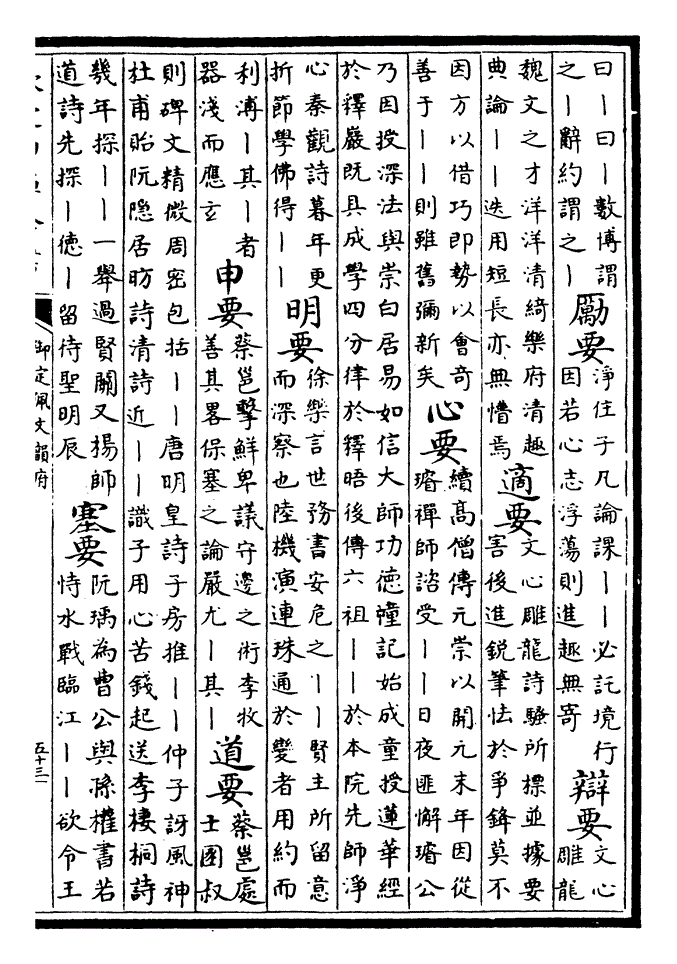 曰丨曰丨數博謂
之丨辭約謂之丨
勵要
淨住子凡論課丨丨必託境行
因若心志浮蕩則進趣無寄
辯要
文心
雕龍
魏文之才洋洋清綺樂府清趣
典論丨丨迭用短長亦無懵焉
適要
文心雕龍詩騷所標並據要
害後進銳筆怯於爭鋒莫不
因方以借巧即勢以會奇
善于丨丨則雖舊彌新矣
心要
續高僧傳元崇以開元末年因從
璿禪師諮受丨丨日夜匪懈璿公
乃因授深法與崇白居易如信大師功德幢記始成童授蓮華經
於釋巖既具成學四分律於釋晤後傳六祖丨丨於本院先師淨
心秦觀詩暮年更
折節學佛得丨丨
明要
徐樂言世務書安危之丨丨賢主所留意
而深察也陸機演連珠通於變者用約而
利溥丨其丨者
器淺而應玄
申要
蔡邕擊鮮卑議守邊之術李牧
善其畧保塞之論嚴尤丨其丨
道要
蔡邕處
士圂叔
則碑文精微周密包括丨丨唐明皇詩子房推丨丨仲子訝風神
杜甫貽阮隱居昉詩清詩近丨丨識子用心苦錢起送李棲桐詩
幾年探丨丨一舉過賢關又揚師
道詩先探丨德丨留待聖明辰
塞要
阮瑀為曹公與孫權書若
恃水戰臨江丨丨欲令王
御定佩文韻府
五十三